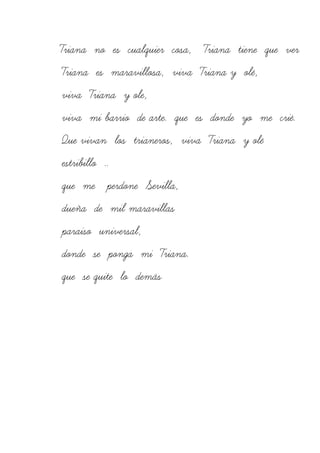 Triana no es cualquier cosa, Triana tiene que ver
Triana es maravillosa, viva Triana y olé,
viva Triana y ole,
viva mi barrio de arte. que es donde yo me crié.
Que vivan los trianeros, viva Triana y olé
estribillo ..
que me perdone Sevilla,
dueña de mil maravillas
paraíso universal,
donde se ponga mi Triana.
que se quite lo demás